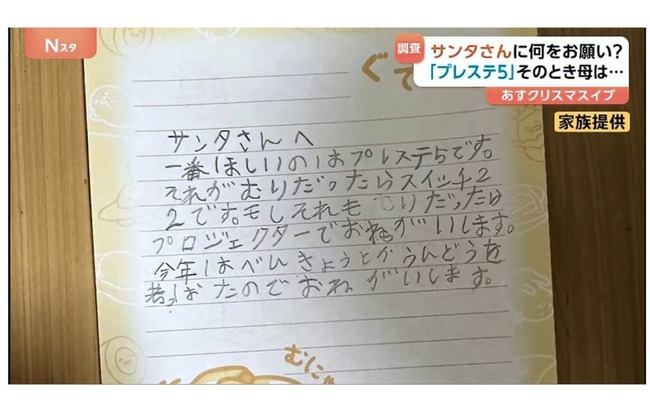 Nスタ
調査
サンタさんに何をお願い?
「プレステ5」そのとき母は…
あすクリスマスイブ
家族提供
ぐで
サンタさんへ
一番ほしいのはプレステ5です。
それがむりだったらスイッチ2
2です。もしそれもむりだったら
プロジェクターでおねがいします。
今年はべんきょうとかうんどうを
たのでおねがいします。
むにゃ